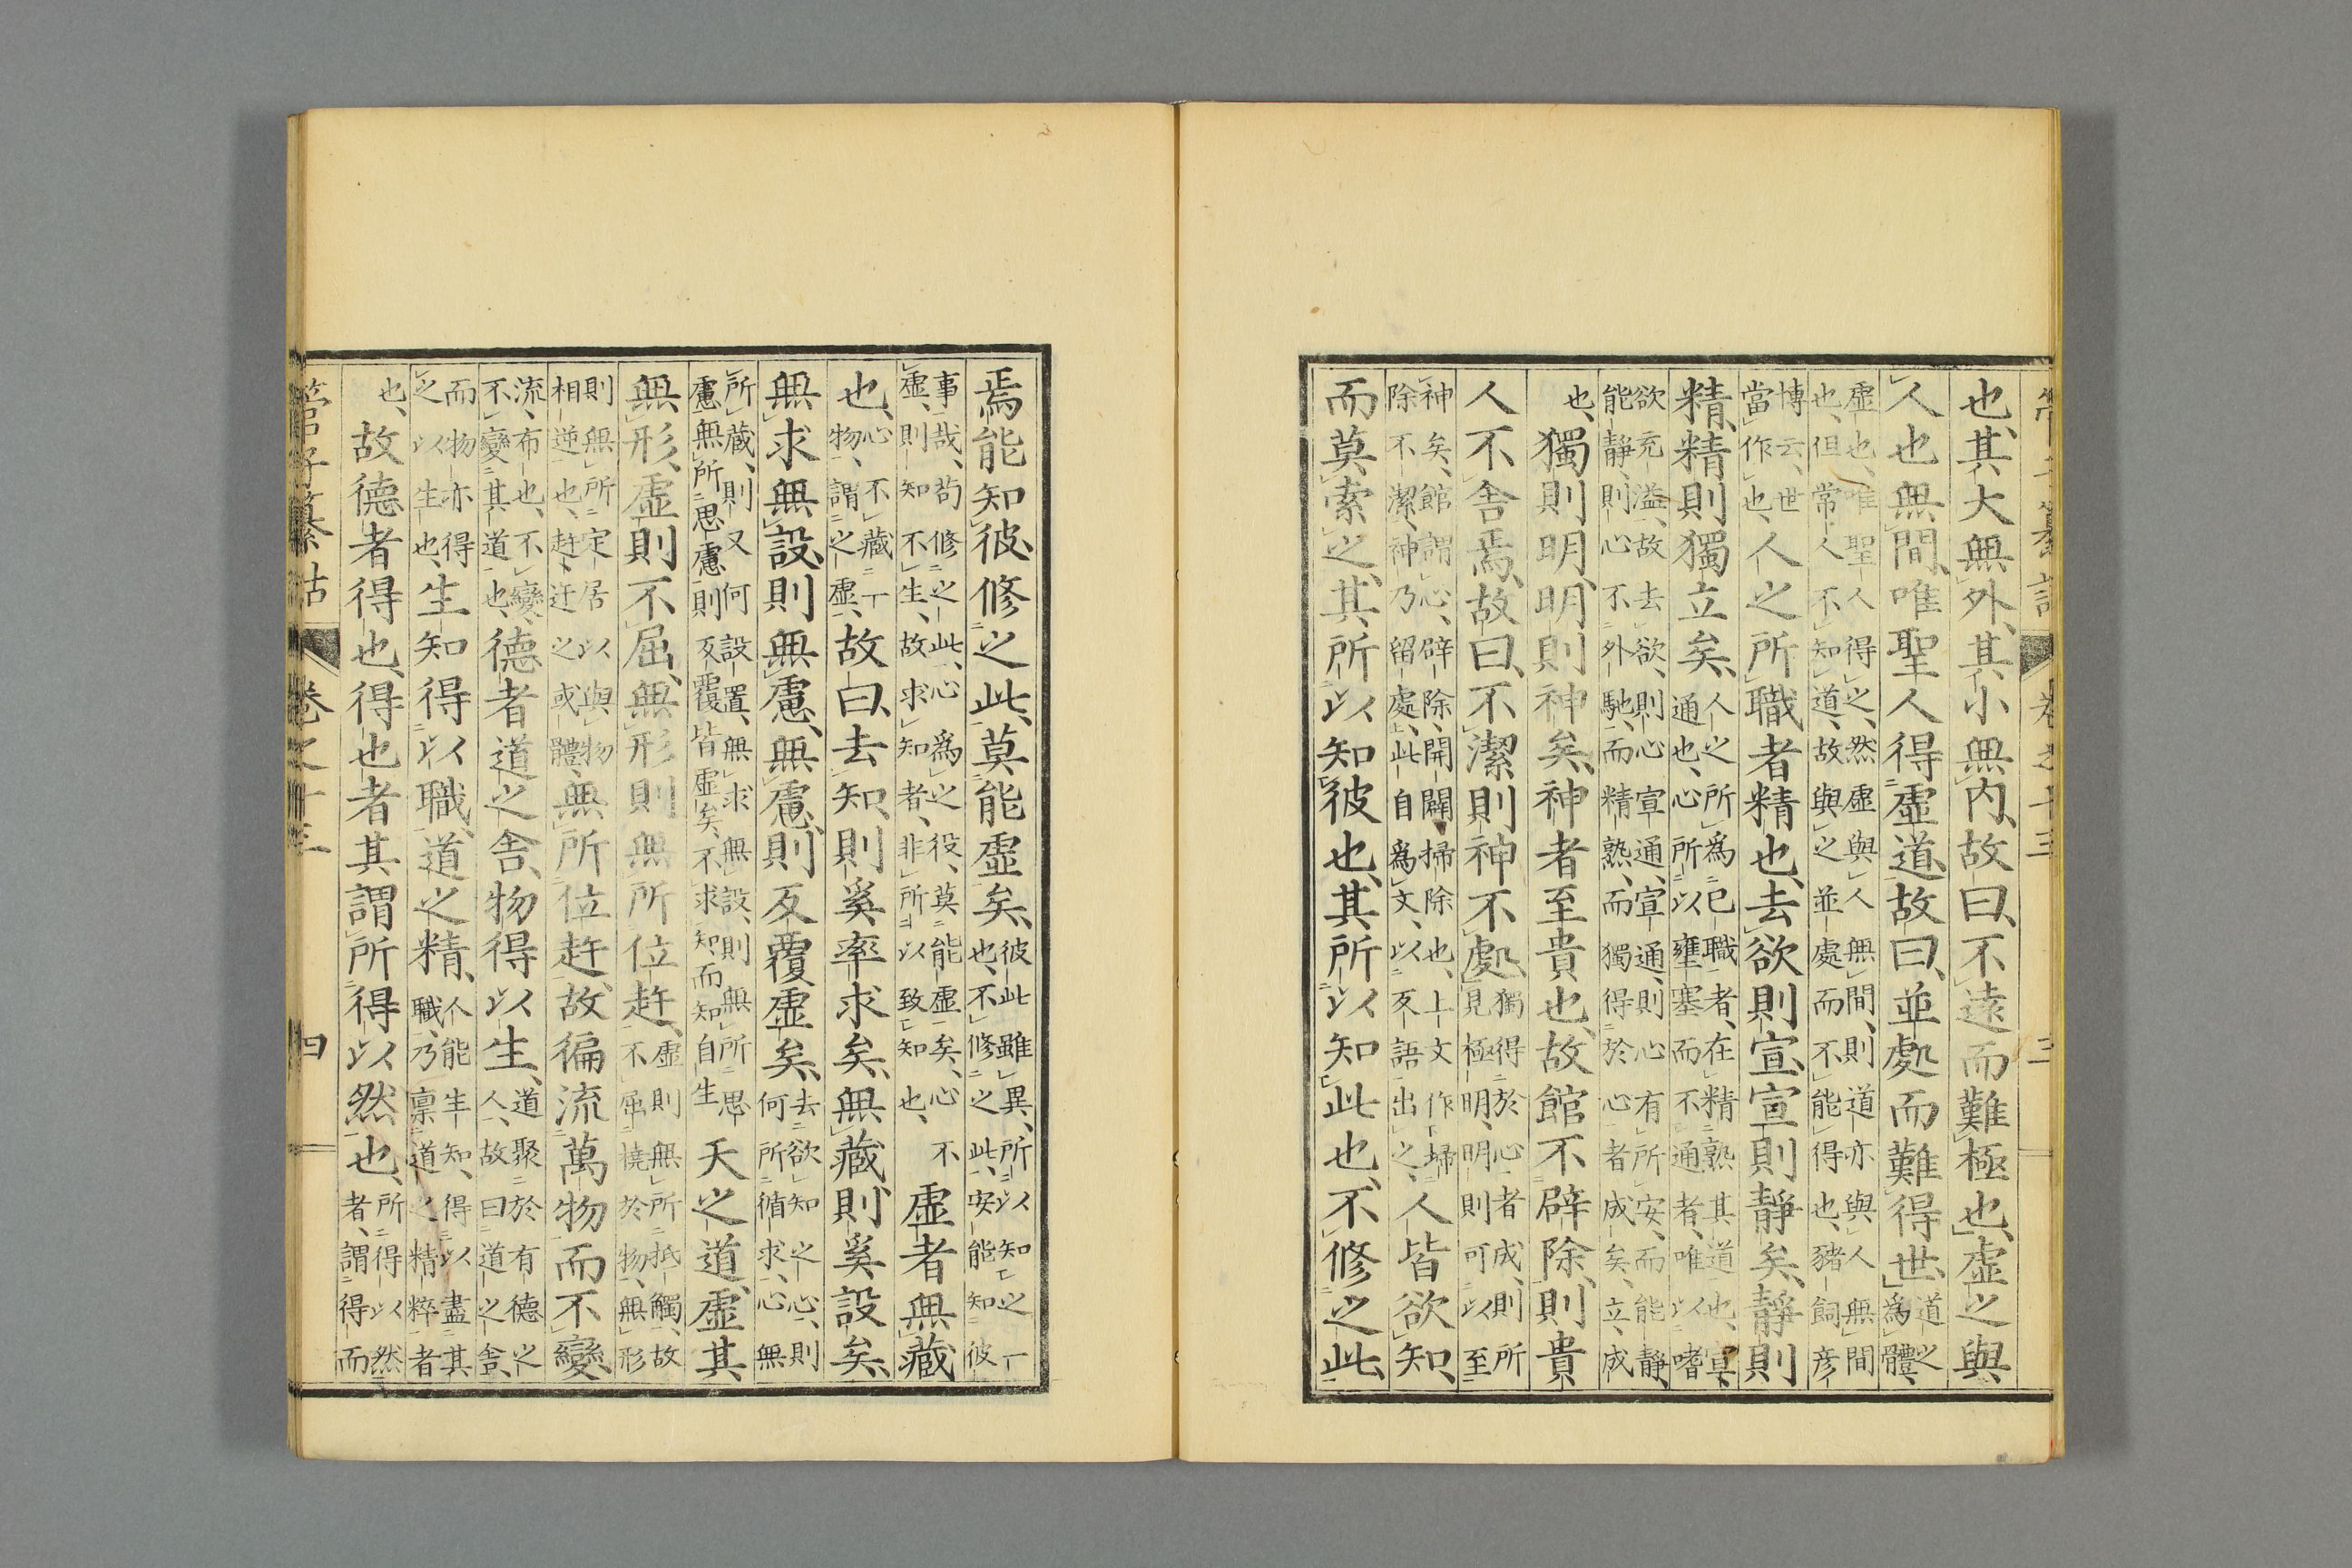 管子纂詁 卷之十三 三
也、其大無外、其小無内、故曰、不遠而難極也、虛之與
人也無間、唯聖人得虛道、故曰、並處而難得世、道之爲體、
虛也、唯聖人得之、然虛與人無間、則道亦與人無間
也、但常人不知道、故與之並處而不能得也、豬飼彥
博云、世當作也、人之所職者精也、去欲則宣、宣則靜矣、靜則
精、精則獨立矣、人之所爲已職者、在精熟其道也、宣、通也、心所以壅塞而不通者、唯以嗜
欲充溢、故去欲、則心宣通、宣通、則心有所安、而能靜、
能靜、則心不外馳、而精熟、而獨得於心者成矣、立、成
也、獨則明、明則神矣、神者至貴也、故館不辟除、則貴
人不舍焉、故曰、不潔則神不處、獨得於心者成、則所見極明、明則可以至
神矣、館謂心、辟除、開闢掃除也、上文作埽除不潔、神乃留處、此自爲文、以反語出之、人皆欲知、
而莫索之、其所以知彼也、其所以知此也、不修之此、
焉能知彼、修之此、莫能虛矣、彼此雖異、所以知之一也、不修之此、安能知彼
事哉、苟修之此、心爲之役、莫能虛矣、心不虛、則知不生、故求知者、非所以致知也、虛者無藏
也、心不藏一物、謂之虛、故曰、去知、則奚率求矣、無藏則奚設矣、
無求無設、則無慮、無慮、則反覆虛矣、去欲知之心、則何所循求、心無
所藏、則又何設置、無求無設、則無所思慮、無所思慮、則反覆皆虛矣、不求知、而知自生天之道、虛其
無形、虛則不屈、無形則無所位赶、虛則無所抵觸、故不屈撓於物、無形
則無所定居、以與物相逆也、赶、迕之或體、無所位赶、故徧流萬物而不變
流、布也、不變、不變其道也、德者道之舍、物得以生、道聚於有德之人、故曰道之舍、
而物亦得之以生也、生知得以職道之精、人能生知、得以盡其職、乃禀道之精粹者
也、故德者得也、得也者其謂所得以然也、所得以然者、謂得而
管子纂詁 卷之十三 四